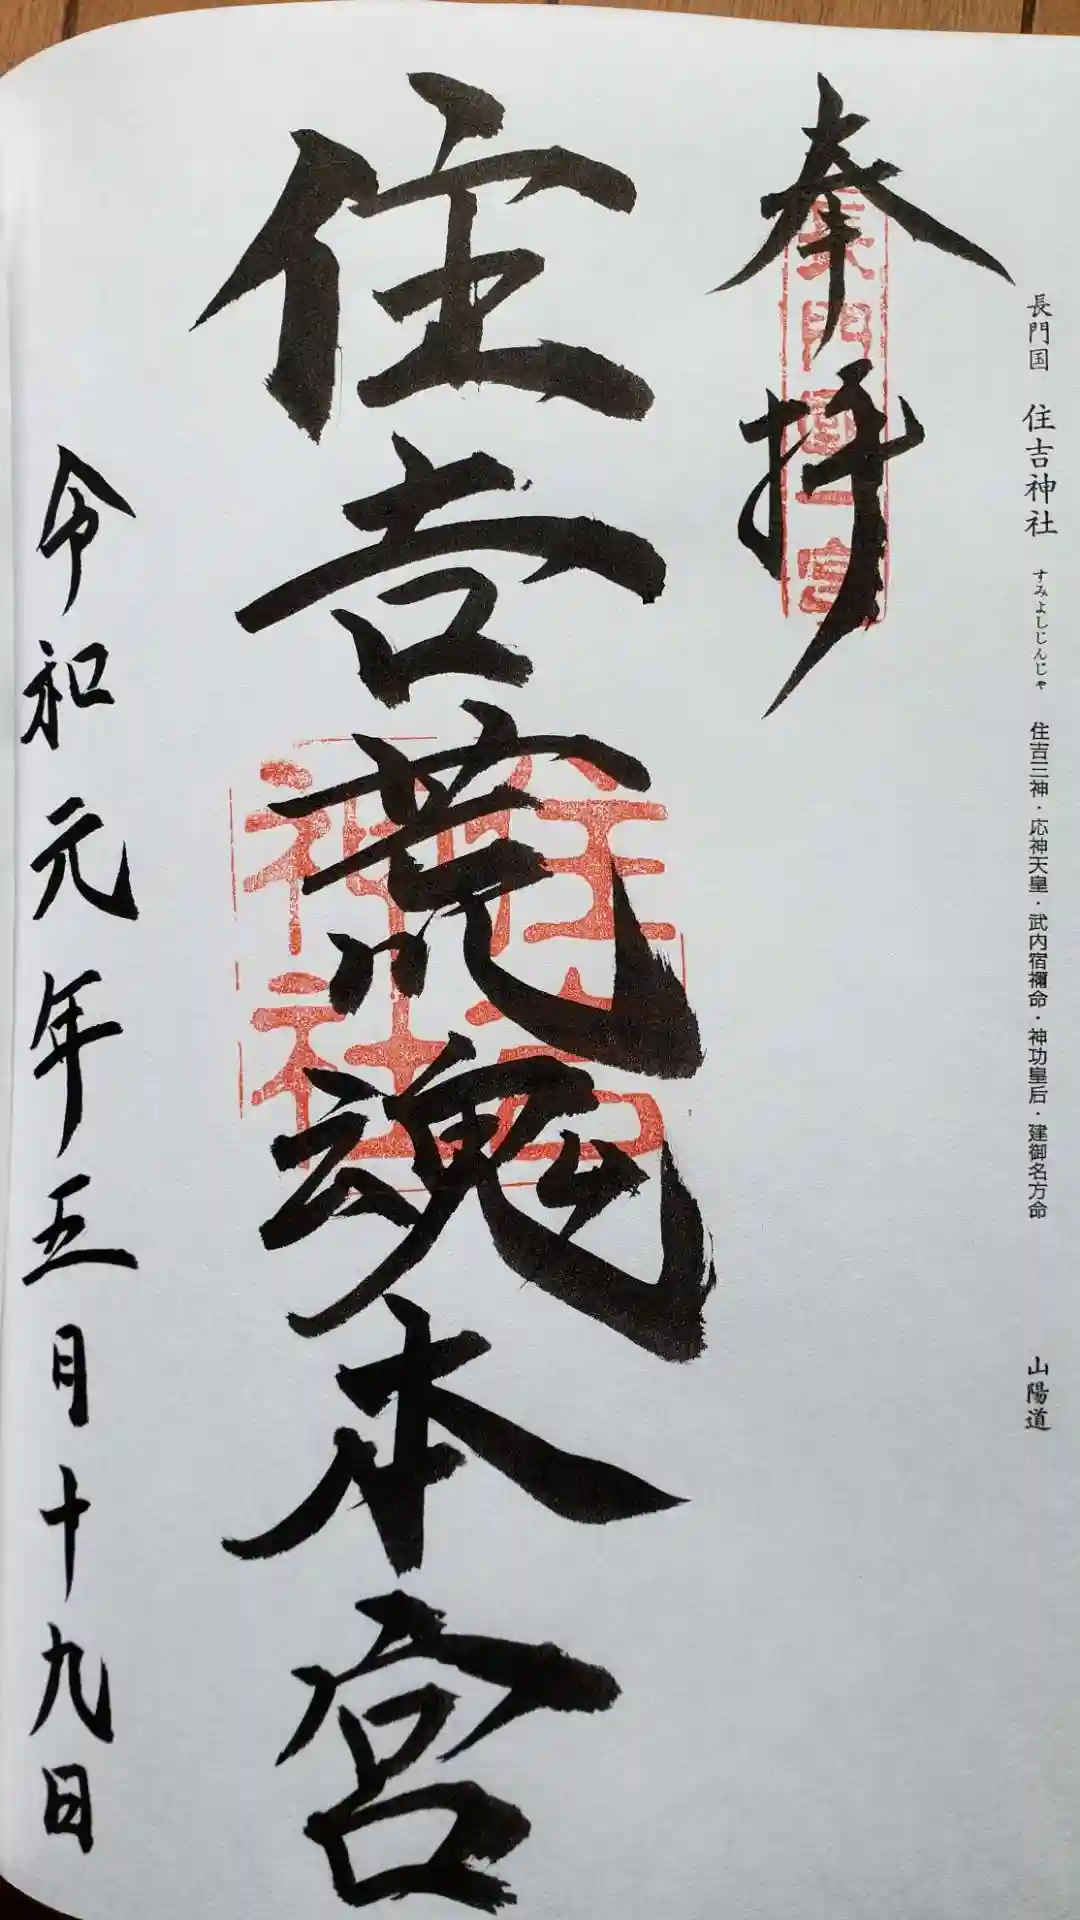 長門国 住吉神社 すみよしじんじゃ 住吉三神・応神天皇・武内宿禰命・神功皇后・建御名方命 山陽道
奉拝
長門国一宮
住吉荒魂本宮
住吉
神社
令和元年五月十九日